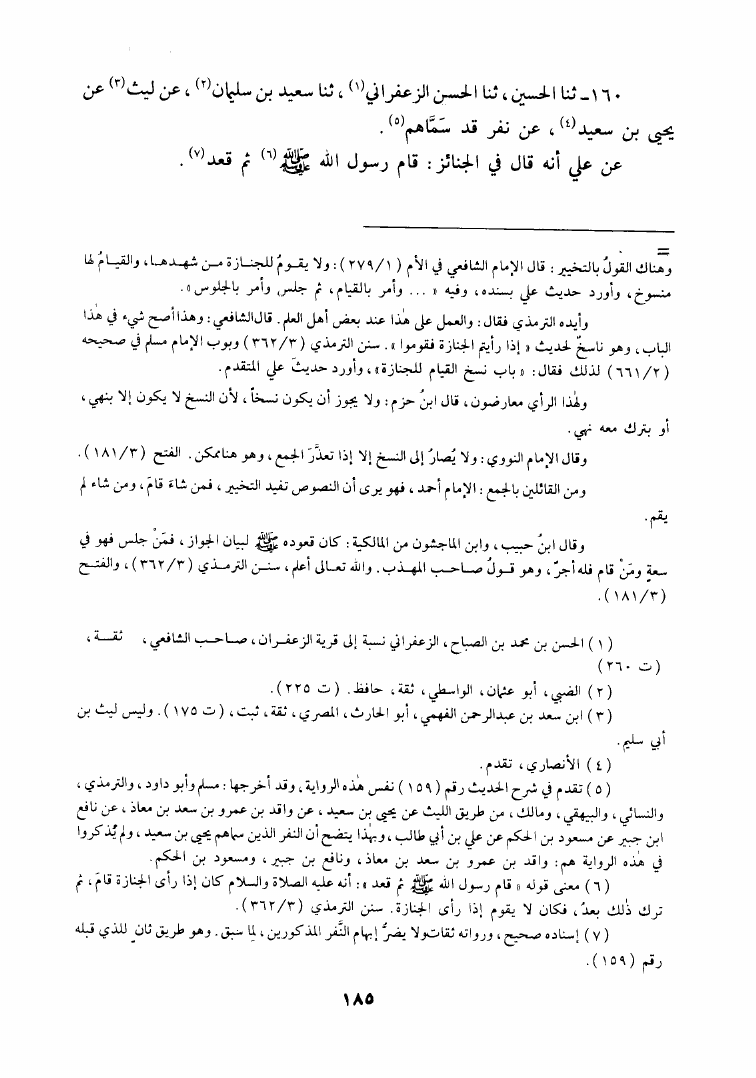 ١٦٠ - ثنا الحسين، ثنا الحسن الزعفراني(١)، ثنا سعيد بن سليمان(٢)، عن ليث(٣) عن
يحيى بن سعيد(٤)، عن نفر قد سَمَّاهم(٥).
عن علي أنه قال في الجنائز: قام رسول الله ﷺ(٦) ثم قعد(٧).
=
وهناك القولُ بالتخيير: قال الإمام الشافعي في الأم (٢٧٩/١): ولا يقومُ للجنازة من شهدها، والقيامُ لها
منسوخ، وأورد حديث علي بسنده، وفيه «... وأمر بالقيام، ثم جلس وأمر بالجلوس».
وأيده الترمذي فقال: والعمل على هٰذا عند بعض أهل العلم. قال الشافعي: وهذا أصح شيء في هٰذا
الباب، وهو ناسخٌ لحديث «إذا رأيتم الجنازة فقوموا». سنن الترمذي (٣٦٢/٣) وبوب الإمام مسلم في صحيحه
(٦٦١/٢) لذلك فقال: «باب نسخ القيام للجنازة»، وأورد حديثَ علي المتقدم.
ولهٰذا الرأي معارضون، قال ابنُ حزم: ولا يجوز أن يكون نسخاً، لأن النسخ لا يكون إلا بنهي،
أو بترك معه نهي.
وقال الإمام النووي: ولا يُصارُ إلى النسخ إلا إذا تعذَّرَ الجمع، وهو هنا ممكن. الفتح (١٨١/٣).
ومن القائلين بالجمع: الإمام أحمد، فهو يرى أن النصوص تفيد التخيير، فمن شاءَ قامَ، ومن شاء لم
يقم.
وقال ابنُ حبيب، وابن الماجشون من المالكية: كان قعوده ﷺ لبيان الجواز، فمَنْ جلس فهو في
سعةٍ ومَنْ قام فله أجرٌ، وهو قولُ صاحب المهذب. والله تعالى أعلم، سنن الترمذي (٣٦٢/٣)، والفتح
(١٨١/٣).
(١) الحسن بن محمد بن الصباح، الزعفراني نسبة إلى قرية الزعفران، صاحب الشافعي، ثقة،
(ت ٢٦٠)
(٢) الضبي، أبو عثمان، الواسطي، ثقة، حافظ. (ت ٢٢٥).
(٣) ابن سعد بن عبدالرحمن الفهمي، أبو الحارث، المصري، ثقة، ثبت، (ت ١٧٥). وليس ليث بن
أبي سليم.
(٤) الأنصاري، تقدم.
(٥) تقدم في شرح الحديث رقم (١٥٩) نفس هٰذه الرواية، وقد أخرجها: مسلم وأبو داود، والترمذي،
والنسائي، والبيهقي، ومالك، من طريق الليث عن يحيى بن سعيد، عن واقد بن عمرو بن سعد بن معاذ، عن نافع
ابن جبير عن مسعود بن الحكم عن علي بن أبي طالب، وبهٰذا يتضح أن النفر الذين سماهم يحيى بن سعيد، ولم يُذكروا
في هٰذه الرواية هم: واقد بن عمرو بن سعد بن معاذ، ونافع بن جبير، ومسعود بن الحكم.
(٦) معنى قوله «قام رسول الله ﷺ ثم قعد»: أنه عليه الصلاة والسلام كان إذا رأى الجنازة قامَ، ثم
ترك ذٰلك بعدُ، فكان لا يقوم إذا رأى الجنازة. سنن الترمذي (٣٦٢/٣).
(٧) إسناده صحيح، ورواته ثقات ولا يضرُّ إبهام النَّفر المذكورين، لما سبق. وهو طريق ثانٍ للذي قبله
رقم (١٥٩).
١٨٥